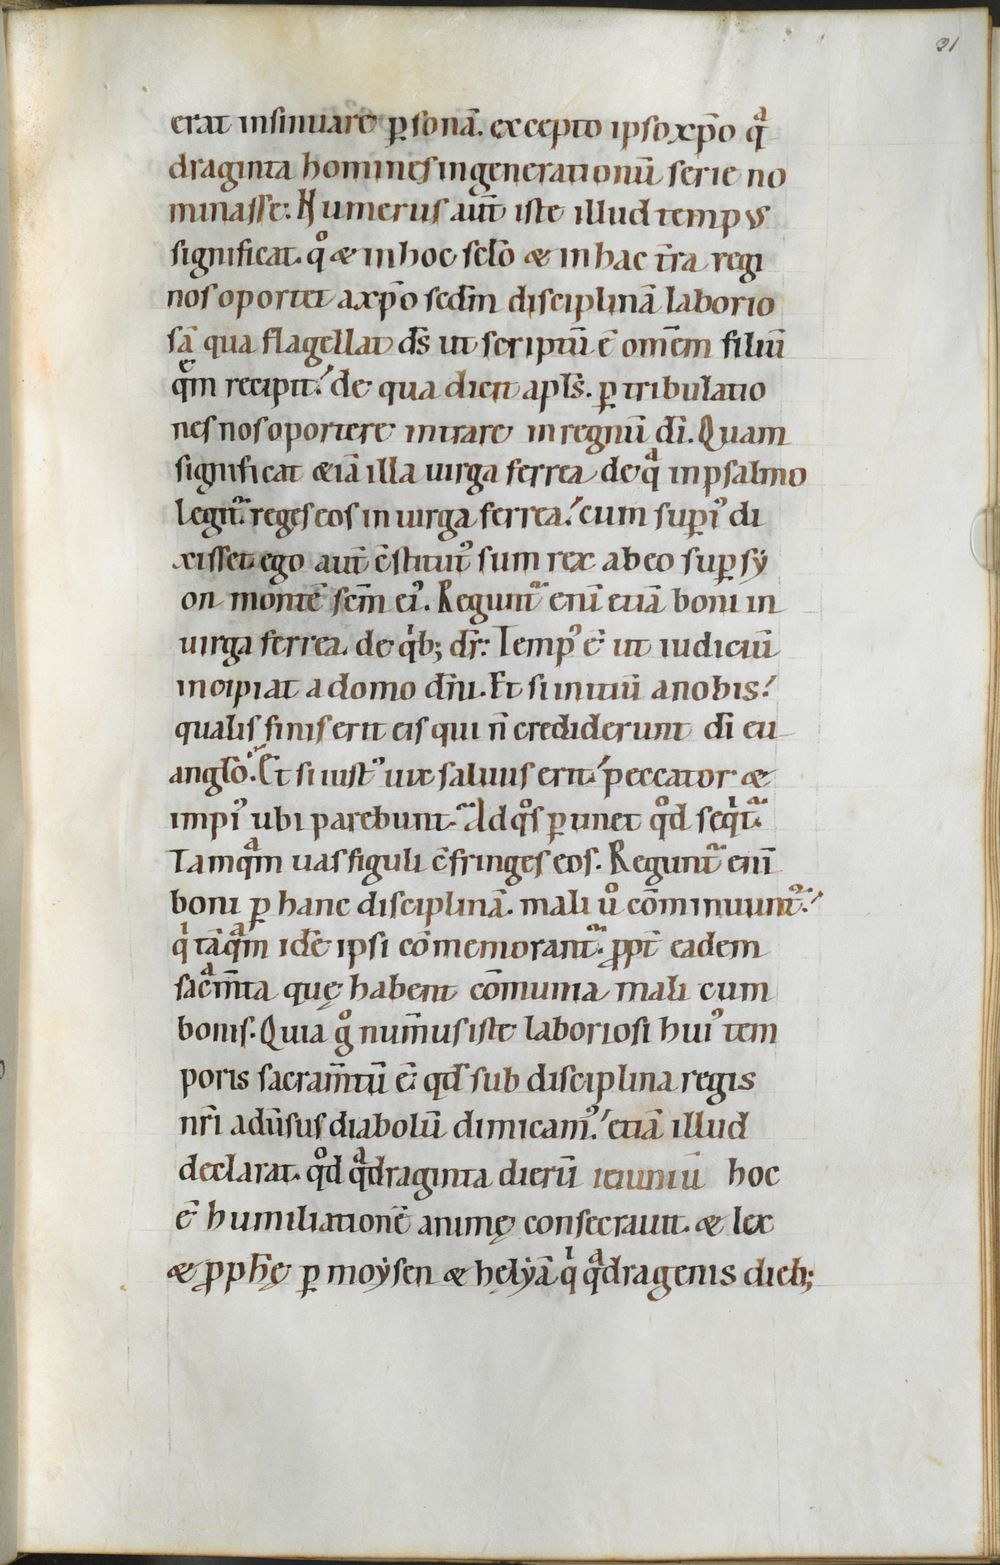 31
erat insinuare p̱sonā. excepto ipso xp̄o qᵃ
draginta homines in generationū serie no
minasse. Numerus aut̄ iste illud tempus
significat. qͦ & in hoc sc̄lo & in hac t̄ra regi
nos oportet a xp̄o sedm̄ disciplinā laborio
sā qua flagellat ds̄ ut scriptū ē om̄em filiū
quē̄m recipit. de qua dicit apl̄s. p̱ tribulatio
nes nos oportere intrare in regnū dī. Quam
significat &iā illa uirga ferrea de qᵃ in psalmo
legit᷑. reges eos in uirga ferrea. cum supi᷒ di
xisset. ego aut̄ c̄stitut᷒ sum rex ab eo sup̱ sẏ
on montē sc̄m ei᷒. Regunt᷑ eni᷒ etiā boni in
uirga ferrea. de qⁱb; dr̄. Temp᷒ ē ut iudiciū
incipiat a domo dn̄i. Et si initiū a nobis.
qualis finis erit eis qui n̄ crediderunt dī eu
angl̄o. Et si iust᷒ uix saluus erit. peccator &
impi᷒ ubi parebunt. Ad qͦs p̱tinet qͦd seqⁱt᷑.
Tamqᵃm uas figuli c̄fringes eos. Regunt᷑ enī
boni p̱ hanc disciplinā. mali uͦ cōminuunt᷑.
qⁱ tāqᵃm idē ipsi cōmemorant᷑. ꝓpt̄ eadem
sacᵃm̄ta quę habent cōmunia mali cum
bonis. Quia gͦ num̄us iste laboriosi hui᷒ tem
poris sacram̄tū ē. qd̄ sub disciplina regis
nr̄i adūsus diabolū dimicam᷒. etiā illud
declarat. qͦd qᵃdraginta dierū ieiuniū hoc
ē humiliationē animę consecrauit. & lex
& ꝓph̄ę p̱ moẏsen & helẏā qⁱ qᵃdragenis dieb;